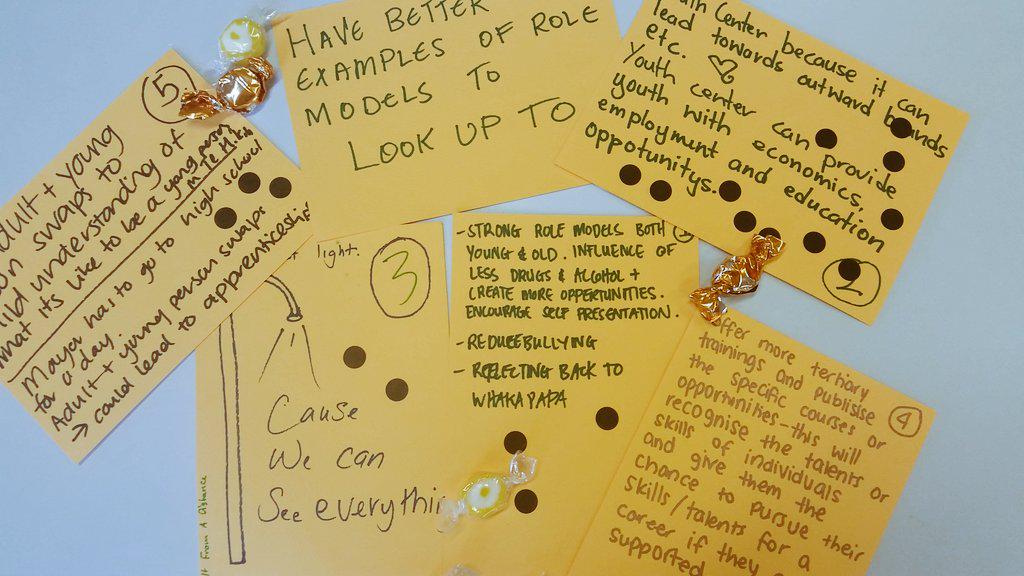 5
dult + young
on swaps to
ild understanding of
what its like to be a young person
Mayor has to go to high school
for a day
Adult + young person swaps
→ could lead to apprenticeship
HAVE BETTER
EXAMPLES OF ROLE
MODELS TO
LOOK UP TO
Center because it can
lead towards outward bounds
etc.
Youth center can provide
youth with economics,
employment and education
oppotunitys.
2
light.
3
Cause
We can
See everythin
t From A Distance
- STRONG ROLE MODELS BOTH
YOUNG & OLD. INFLUENCE OF
LESS DRUGS & ALCOHOL +
CREATE MORE OPPERTUNITIES.
ENCOURAGE SELF PRESENTATION.
- REDUCE BULLYING
- REFLECTING BACK TO
WHAKAPAPA
offer more tertiary
trainings and publisise
the specific courses or
opportunities - this will
recognise the talents or
skills of individuals
and give them the
chance to pursue their
skills/talents for a
career if they
supported
4